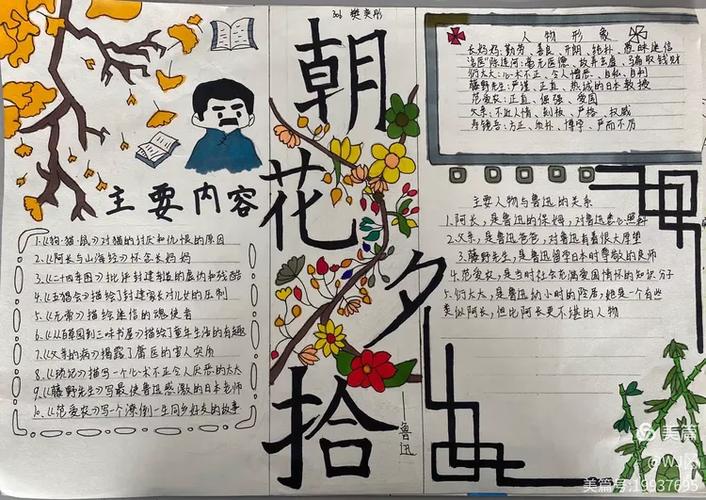 朝花夕拾
——鲁迅
主要内容
1.《狗·猫·鼠》对猫的讨厌和仇恨的原因
2.《阿长与山海经》怀念长妈妈
3.《二十四孝图》批评封建制造的虚伪和残酷
4.《五猖会》描绘了封建家长对儿女的压制
5.《无常》描绘迷信的魂使者
6.《从百草园到三味书屋》描绘了童年生活的有趣
7.《父亲的病》揭露了庸医的害人实质
8.《琐记》描写一个心术不正令人厌恶的太太
9.《藤野先生》写最使鲁迅感激的日本老师
10.《范爱农》写一个潦倒一生同乡好友的故事
人物形象
长妈妈:勤劳、善良、开朗、纯朴、愚昧迷信
"名医"陈莲河:毫无医德、故弄玄虚、骗取钱财
衍太太:心术不正、令人憎恶、自私、自利
藤野先生:严谨、正直、热诚的日本教授
范爱农:正直、倔强、爱国
父亲:不近人情、刻板、严格、权威
寿镜吾:方正、质朴、博学、严而不厉
主要人物与鲁迅的关系
1.阿长,是鲁迅的保姆,对鲁迅悉心照料
2.父亲,是鲁迅爸爸,对鲁迅有着很大厚望
3.藤野先生,是鲁迅留学日本时尊敬的良师
4.范爱农,是当时社会充满爱国情怀的知识分子
5.衍太太,是鲁迅的小时的隆居,她是一个有些
类似阿长,但比阿长更不堪的人物
美篇
@WJ区
美篇号:19937695